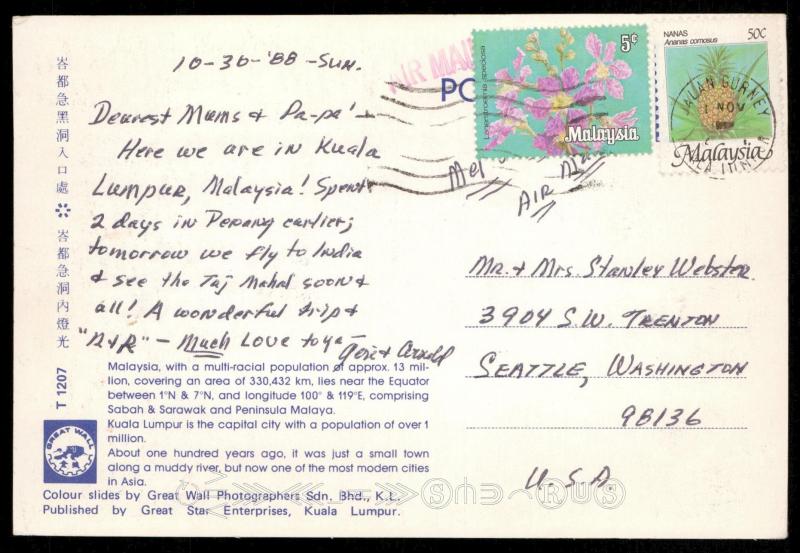 10-30-'88-Sun.
Dearest Mums & Pa-pa' -
Here we are in Kuala
Lumpur, Malaysia! Spent
2 days in Penang earlier;
tomorrow we fly to India
& see the Taj Mahal soon &
all! A wonderful trip &
"R&R" - Much Love to ya -
Geri & Arnold
AIR MAIL
PO
5¢
Lagerstroemia speciosa
Malaysia
NANAS
Ananas comosus
50¢
Malaysia
JALAN GURNEY
1 NOV
AIR MAIL
Mr. & Mrs. Stanley Webster
3904 S.W. Trenton
Seattle, Washington
98136
U.S.A.
峇都急黑洞入口處 ※ 峇都急洞內燈光
T 1207
GREAT WALL
Malaysia, with a multi-racial population of approx. 13 mil-
lion, covering an area of 330,432 km, lies near the Equator
between 1°N & 7°N, and longitude 100° & 119°E, comprising
Sabah & Sarawak and Peninsula Malaya.
Kuala Lumpur is the capital city with a population of over 1
million.
About one hundred years ago, it was just a small town
along a muddy river, but now one of the most modern cities
in Asia.
Colour slides by Great Wall Photographers Sdn. Bhd., K.L.
Published by Great Star Enterprises, Kuala Lumpur.